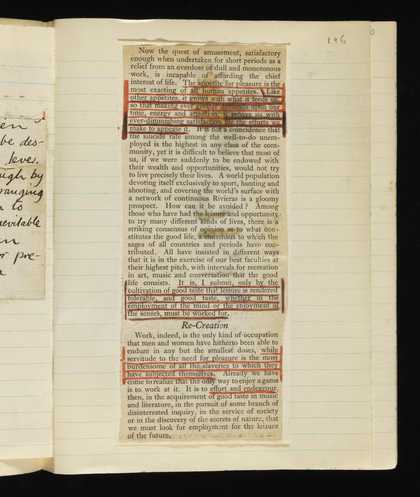 en
be des-
leve.
ugh by
ranging
to
evitable
en
or pre-
n
196
Now the quest of amusement, satisfactory
enough when undertaken for short periods as a
relief from an overdose of dull and monotonous
work, is incapable of affording the chief
interest of life. The appetite for pleasure is the
most exacting of all human appetites. Like
other appetites, it grows with what it feeds on,
so that making ever greater demands upon our
time, energy and it returns us with
ever-diminishing satisfaction for our efforts
make to appease it. It is not a coincidence that
the suicide rate among the well-to-do unem-
ployed is the highest in any class of the com-
munity, yet it is difficult to believe that most of
us, if we were suddenly to be endowed with
wealth and opportunities, would not try
to live precisely their lives. A world population
devoting itself exclusively to sport, hunting and
shooting, and covering the world's surface with
a network of continuous Rivieras is a gloomy
prospect. How can it be avoided? Among
those who have had the leisure and opportunity,
to try many different kinds of lives, there is a
striking consensus of opinion as to what con-
stitutes the good life, a consensus to which the
sages of all countries and periods have con-
tributed. All have insisted in different ways
that it is in the exercise of our best faculties at
their highest pitch, with intervals for recreation
in art, music and conversation that the good
life consists. It is, I submit, only by the
cultivation of good taste that leisure is rendered
tolerable, and good taste, whether in the
employment of the mind or the enjoyment of
the senses, must be worked for.
Re-Creation
Work, indeed, is the only kind of occupation
that men and women have hitherto been able to
endure in any but the smallest doses, while
servitude to the need for pleasure is the most
burdensome of all the slaveries to which they
have subjected themselves. Already we have
come to realize that the only way to enjoy a game
is to work at it. It is to effort and endeavour,
then, in the acquirement of good taste in music
and literature, in the pursuit of some branch of
disinterested inquiry, in the service of society
or in the discovery of the secrets of nature, that
we must look for employment for the leisure
of the future.